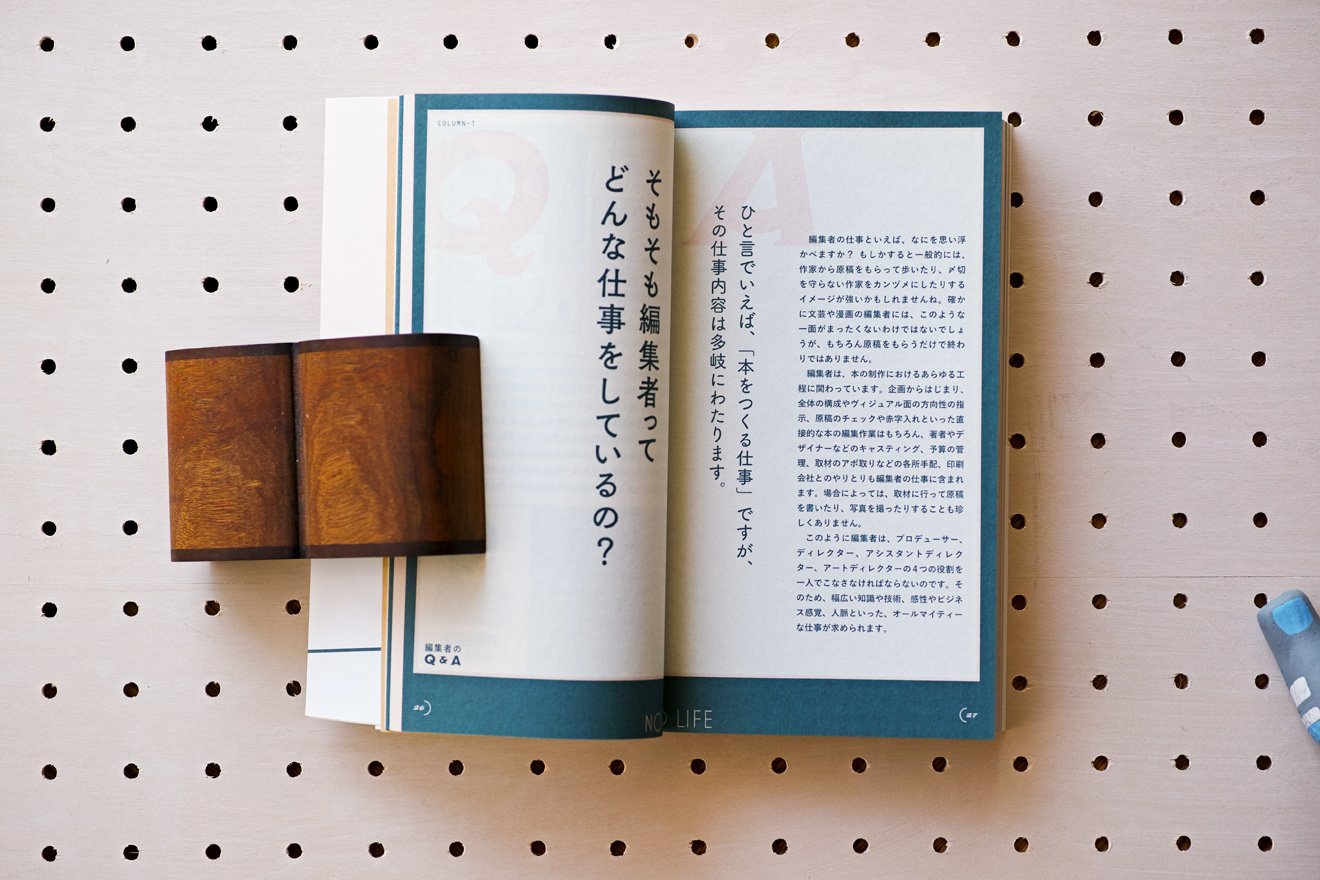 COLUMN-1
Q
そもそも編集者って
どんな仕事をしているの？
編集者の
Q & A
26
A
ひと言でいえば、「本をつくる仕事」ですが、
その仕事内容は多岐にわたります。
編集者の仕事といえば、なにを思い浮
かべますか？ もしかすると一般的には、
作家から原稿をもらって歩いたり、〆切
を守らない作家をカンヅメにしたりする
イメージが強いかもしれませんね。確か
に文芸や漫画の編集者には、このような
一面がまったくないわけではないでしょ
うが、もちろん原稿をもらうだけで終わ
りではありません。
編集者は、本の制作におけるあらゆる工
程に関わっています。企画からはじまり、
全体の構成やヴィジュアル面の方向性の指
示、原稿のチェックや赤字入れといった直
接的な本の編集作業はもちろん、著者やデ
ザイナーなどのキャスティング、予算の管
理、取材のアポ取りなどの各所手配、印刷
会社とのやりとりも編集者の仕事に含まれ
ます。場合によっては、取材に行って原稿
を書いたり、写真を撮ったりすることも珍
しくありません。
このように編集者は、プロデューサー、
ディレクター、アシスタントディレク
ター、アートディレクターの4つの役割を
一人でこなさなければならないのです。そ
のため、幅広い知識や技術、感性やビジネ
ス感覚、人脈といった、オールマイティー
な仕事が求められます。
NO LIFE
27